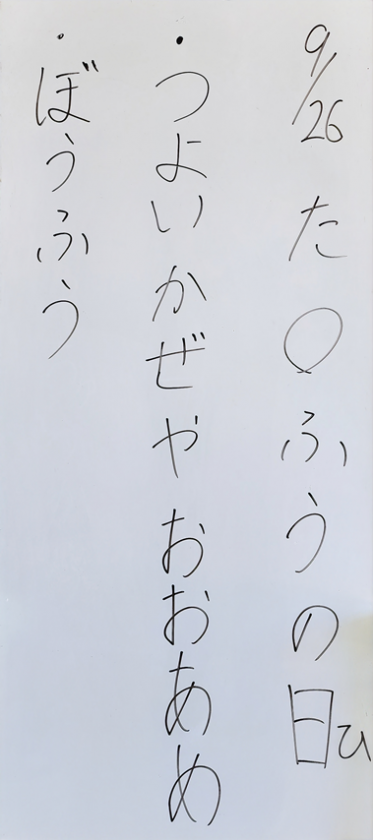 9/26 た〇ふうの日ひ
・つよいかぜやおおあめ
・ぼうふう